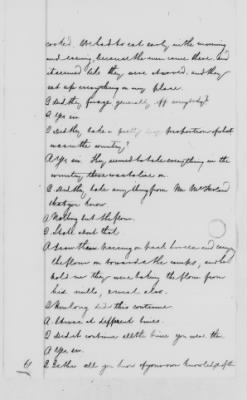 cooked. We had to eat early in the morning
and evening, because the men came there, and
it seemed like they were starved, and they
eat up everything on my place.
Q Did they forage generally off everybody?
A Yes sir.
Q Did they take a pretty large proportion of what
was in the country?
A Yes sir. They seemed to take everything in the
country there was to live on.
Q Did they take anything from Mr. McFarland
that you know
A Nothing but the flour.
Q about that
A I saw them passing on pack horses and carry
the flour on towards the camps, and
told me they were taking the flour from
his mills, a meal also.
Q How long did this continue
A It was at different times.
Q Did it continue all the time you were there.
A Yes sir.
Q Is this all you know of your own knowledge of the